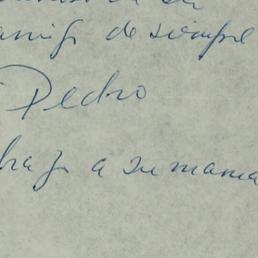 su
amigo de siempre
Pedro
a su mama